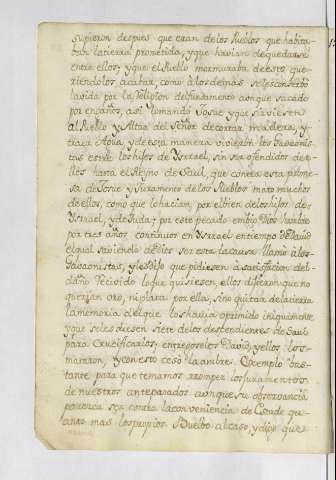 supieron despues que eran de los Pueblos que habita-
ban la tierra prometida, y que havian de quedarse
entre ellos, y que el Pueblo murmuraba de esto que-
riendolos acabar, como à los demas, se les conserbò
la vida por la Religion del Juramento aunque sacado
por engaños, asi lo mandò Josue y que sirviesen
al Pueblo y Altar del Señor de cortar madera, y
traer Agua, y de esta manera vivieron los Gabaonis-
tas entre los hijos de Ysrael, sin ser ofendidos de e-
llos hasta el Reyno de Saul, que contra esta prome-
sa de Josue y Juramento de los Pueblos matò muchos
de ellos, como que lo hacian por el bien de los hijos de
Ysrael, y de Juda: por este pecado embiò Dios hambre
por tres años continuos en Ysrael en tiempo de David
el qual sabiendo de Dios ser esta la causa llamò à los
Gabaonistas, y les dijo que pidiesen à satisfacion del
daño recivido lo que quisiesen, ellos dijeron que no
querian oro, ni plata por ella, sino quitar de la tierra
la memoria del que los havia oprimido iniquamente
y que se les diesen siete de los desendientes de Saul
para Crucificarlos, entregoselos David, y ellos los
mataron, y con esto cesò la ambre. Exemplo bas-
tante para que temamos rromper los juramentos
de nuestros antepasados aunque su observancia
parezca ser contra la conveniencia de Estado qu-
anto mas los propios. Buelbo al caso, y digo que